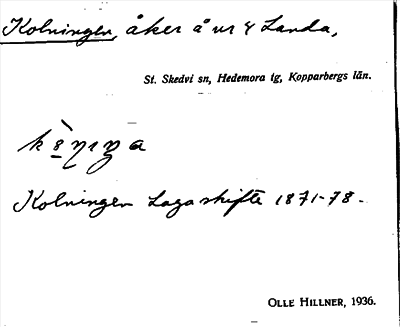 Kolningen, åker å nr 4 Landa,
St. Skedvi sn, Hedemora tg, Kopparbergs län.
Kolningen Laga skifte 1871-78.
OLLE HILLNER, 1936.